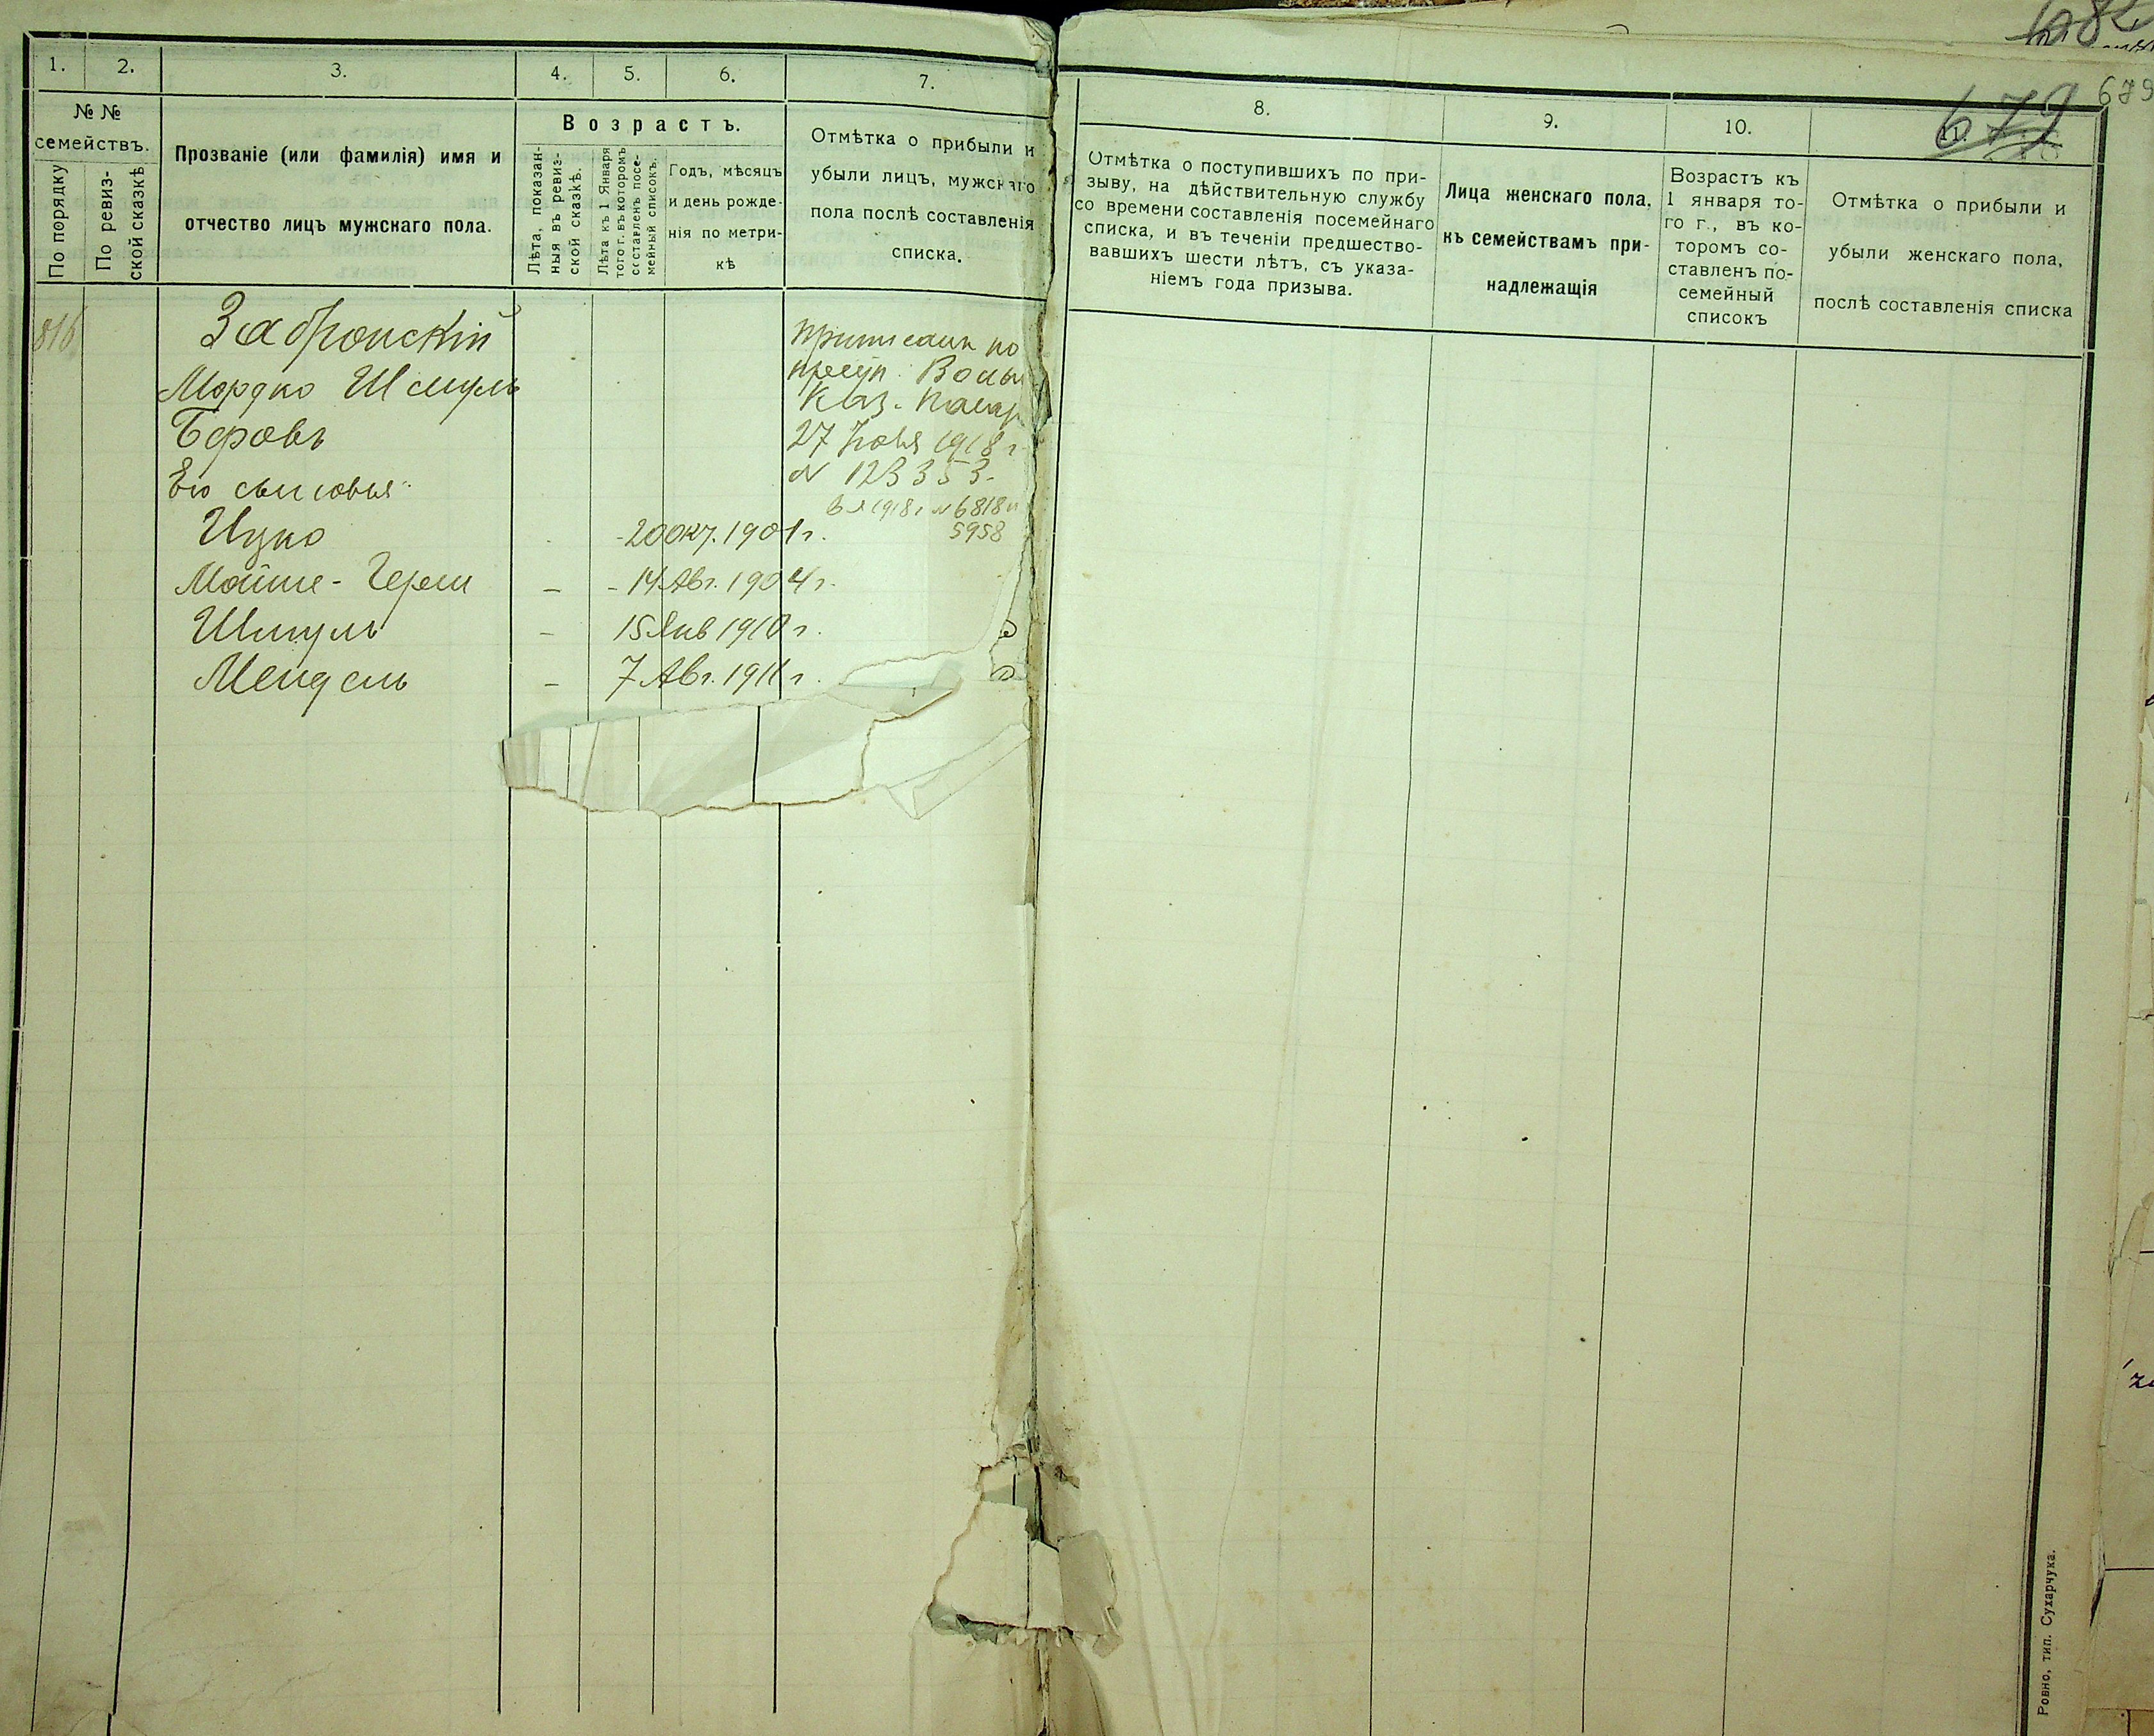 1.
2.
3.
4.
5.
6.
7.
№ №
семействъ.
По порядку
По ревиз-
ской сказкѣ
Прозваніе (или фамилія) имя и
отчество лицъ мужскаго пола.
Возрастъ.
Лѣта, показан-
ныя въ ревиз-
ской сказкѣ.
Лѣта къ 1 Января
того г. въ которомъ
составленъ посе-
мейный списокъ.
Годъ, мѣсяцъ
и день рожде-
нія по метри-
кѣ
Отмѣтка о прибыли и
убыли лицъ, мужскаго
пола послѣ составленія
списка.
816
Забронскій
Мордко Шмуль
Беровъ
Его сыновья
Ицко 20 окт. 1901 г.
Мойше-Герш - - 14 Авг. 1904 г.
Шмуль - 15 Янв 1910 г.
Мендель - 7 Авг. 1911 г.
Приписан по
Каз. Палат
27 Іюня 1918 г.
N 123353.
1918 г N 6818 и
5958
8.
9.
10.
11.
Отмѣтка о поступившихъ по при-
зыву, на дѣйствительную службу
со времени составленія посемейнаго
списка, и въ теченіи предшество-
вавшихъ шести лѣтъ, съ указа-
ніемъ года призыва.
Лица женскаго пола,
къ семействамъ при-
надлежащія
Возрастъ къ
1 января то-
го г., въ ко-
торомъ со-
ставленъ по-
семейный
списокъ
Отмѣтка о прибыли и
убыли женскаго пола,
послѣ составленія списка
682
679
679
Ровно, тип. Сухарчука.